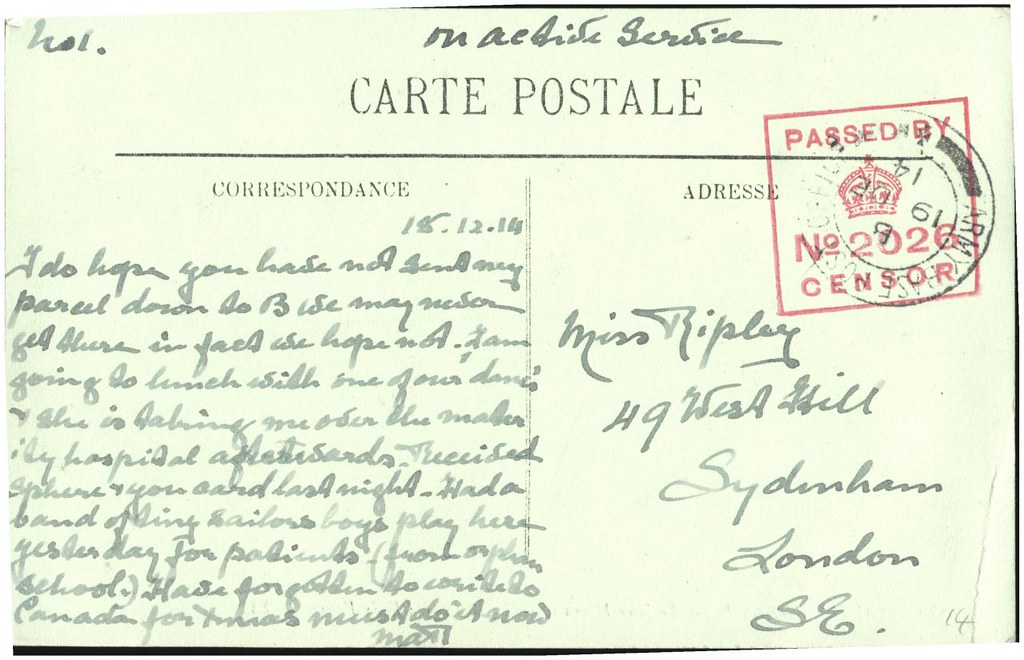 No1.
on active service
CARTE POSTALE
CORRESPONDANCE
ADRESSE
PASSED BY
No 2026
CENSOR
ARMY BASE POST OFFICE
B
19 DE
14
18.12.14
I do hope you have not sent my
parcel down to B we may never
get there in fact we hope not. I am
going to lunch with one of our
& she is taking me over the mater
ity hospital afterwards. Received
Sphere & you card last night. Had a
band of tiny sailors boys play here
yesterday for patients (from orphan
school.) Have forgotten to write to
Canada for Xmas must do it now
Miss Ripley
49 West Hill
Sydenham
London
S.E.
14